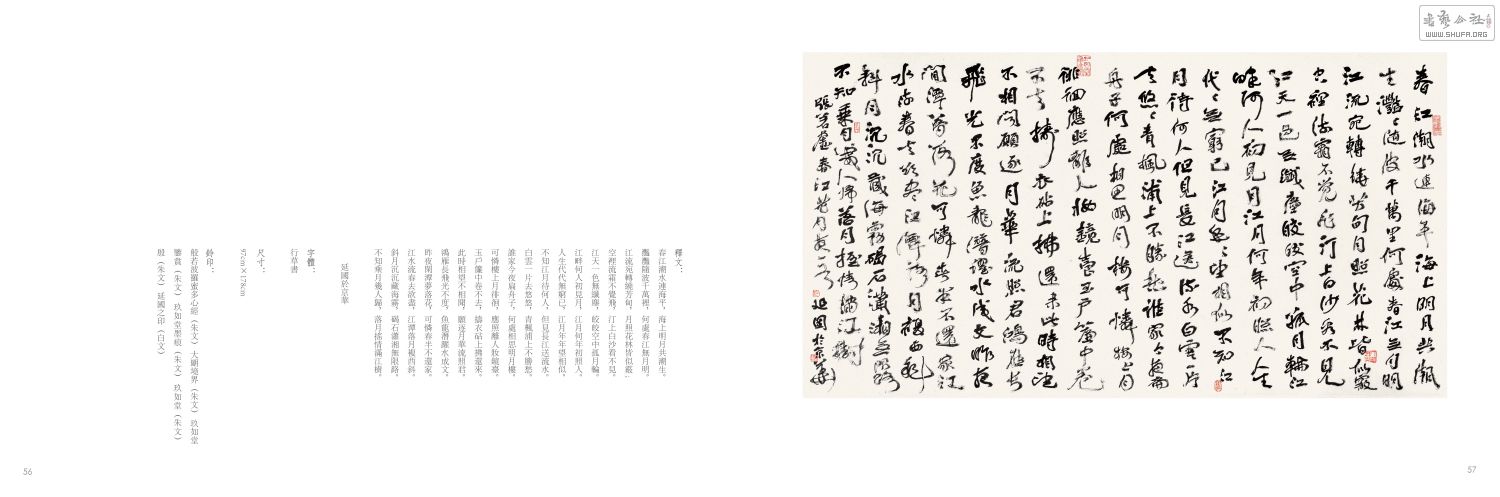 書藝公社
WWW.SHUFA.ORG
春江潮水連海平海上明月共潮
生灩〻隨波千萬里何處春江無月明
江流宛轉繞芳甸月照花林皆似霰
空裡流霜不覺飛汀上白沙看不見
江天一色無纖塵皎皎空中孤月輪江
畔何人初見月江月何年初照人人生
代〻無窮已江月年〻望相似不知江
月待何人但見長江送流水白雲一片
去悠〻青楓浦上不勝愁誰家今夜扁
舟子何處相思明月樓可憐樓上月
徘徊應照離人妝鏡臺玉戶簾中卷
不去擣衣砧上拂還來此時相望
不相聞願逐月華流照君鴻雁長
飛光不度魚龍潛躍水成文昨夜
閒潭夢落花可憐春半不還家江
水流春去欲盡江潭落月復西斜
斜月沉沉藏海霧碣石瀟湘無限路
不知乘月幾人歸落月搖情滿江樹
張若虛春江花月夜一首 延國於京華
釋文：
春江潮水連海平，海上明月共潮生。
灩灩隨波千萬裡，何處春江無月明。
江流宛轉繞芳甸，月照花林皆似霰；
空裡流霜不覺飛，汀上白沙看不見。
江天一色無纖塵，皎皎空中孤月輪。
江畔何人初見月，江月何年初照人。
人生代代無窮已，江月年年望相似。
不知江月待何人，但見長江送流水。
白雲一片去悠悠，青楓浦上不勝愁。
誰家今夜扁舟子，何處相思明月樓。
可憐樓上月徘徊，應照離人妝鏡臺。
玉戶簾中卷不去，擣衣砧上拂還來。
此時相望不相聞，願逐月華流照君。
鴻雁長飛光不度，魚龍潛躍水成文。
昨夜閒潭夢落花，可憐春半不還家。
江水流春去欲盡，江潭落月複西斜。
斜月沉沉藏海霧，碣石瀟湘無限路。
不知乘月幾人歸，落月搖情滿江樹。
延國於京華
字體：
行草書
尺寸：
97cm×178cm
鈐印：
般若波羅蜜多心經（朱文） 大願境界（朱文） 玖如堂
鑒賞（朱文） 玖如堂墨痕（朱文） 玖如堂（朱文）
殷（朱文） 延國之印（白文）
56
57